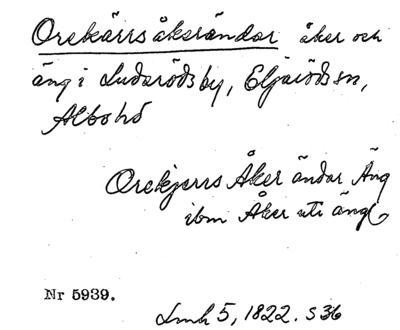 Orekärrs åkerändar åker och
äng i Ludarödsby, Eljaröds sn,
Albo hd
Orekjerrs Åker ändar Äng
ibm Åker uti äng
Nr 5939.
Lmh 5, 1822. S 36